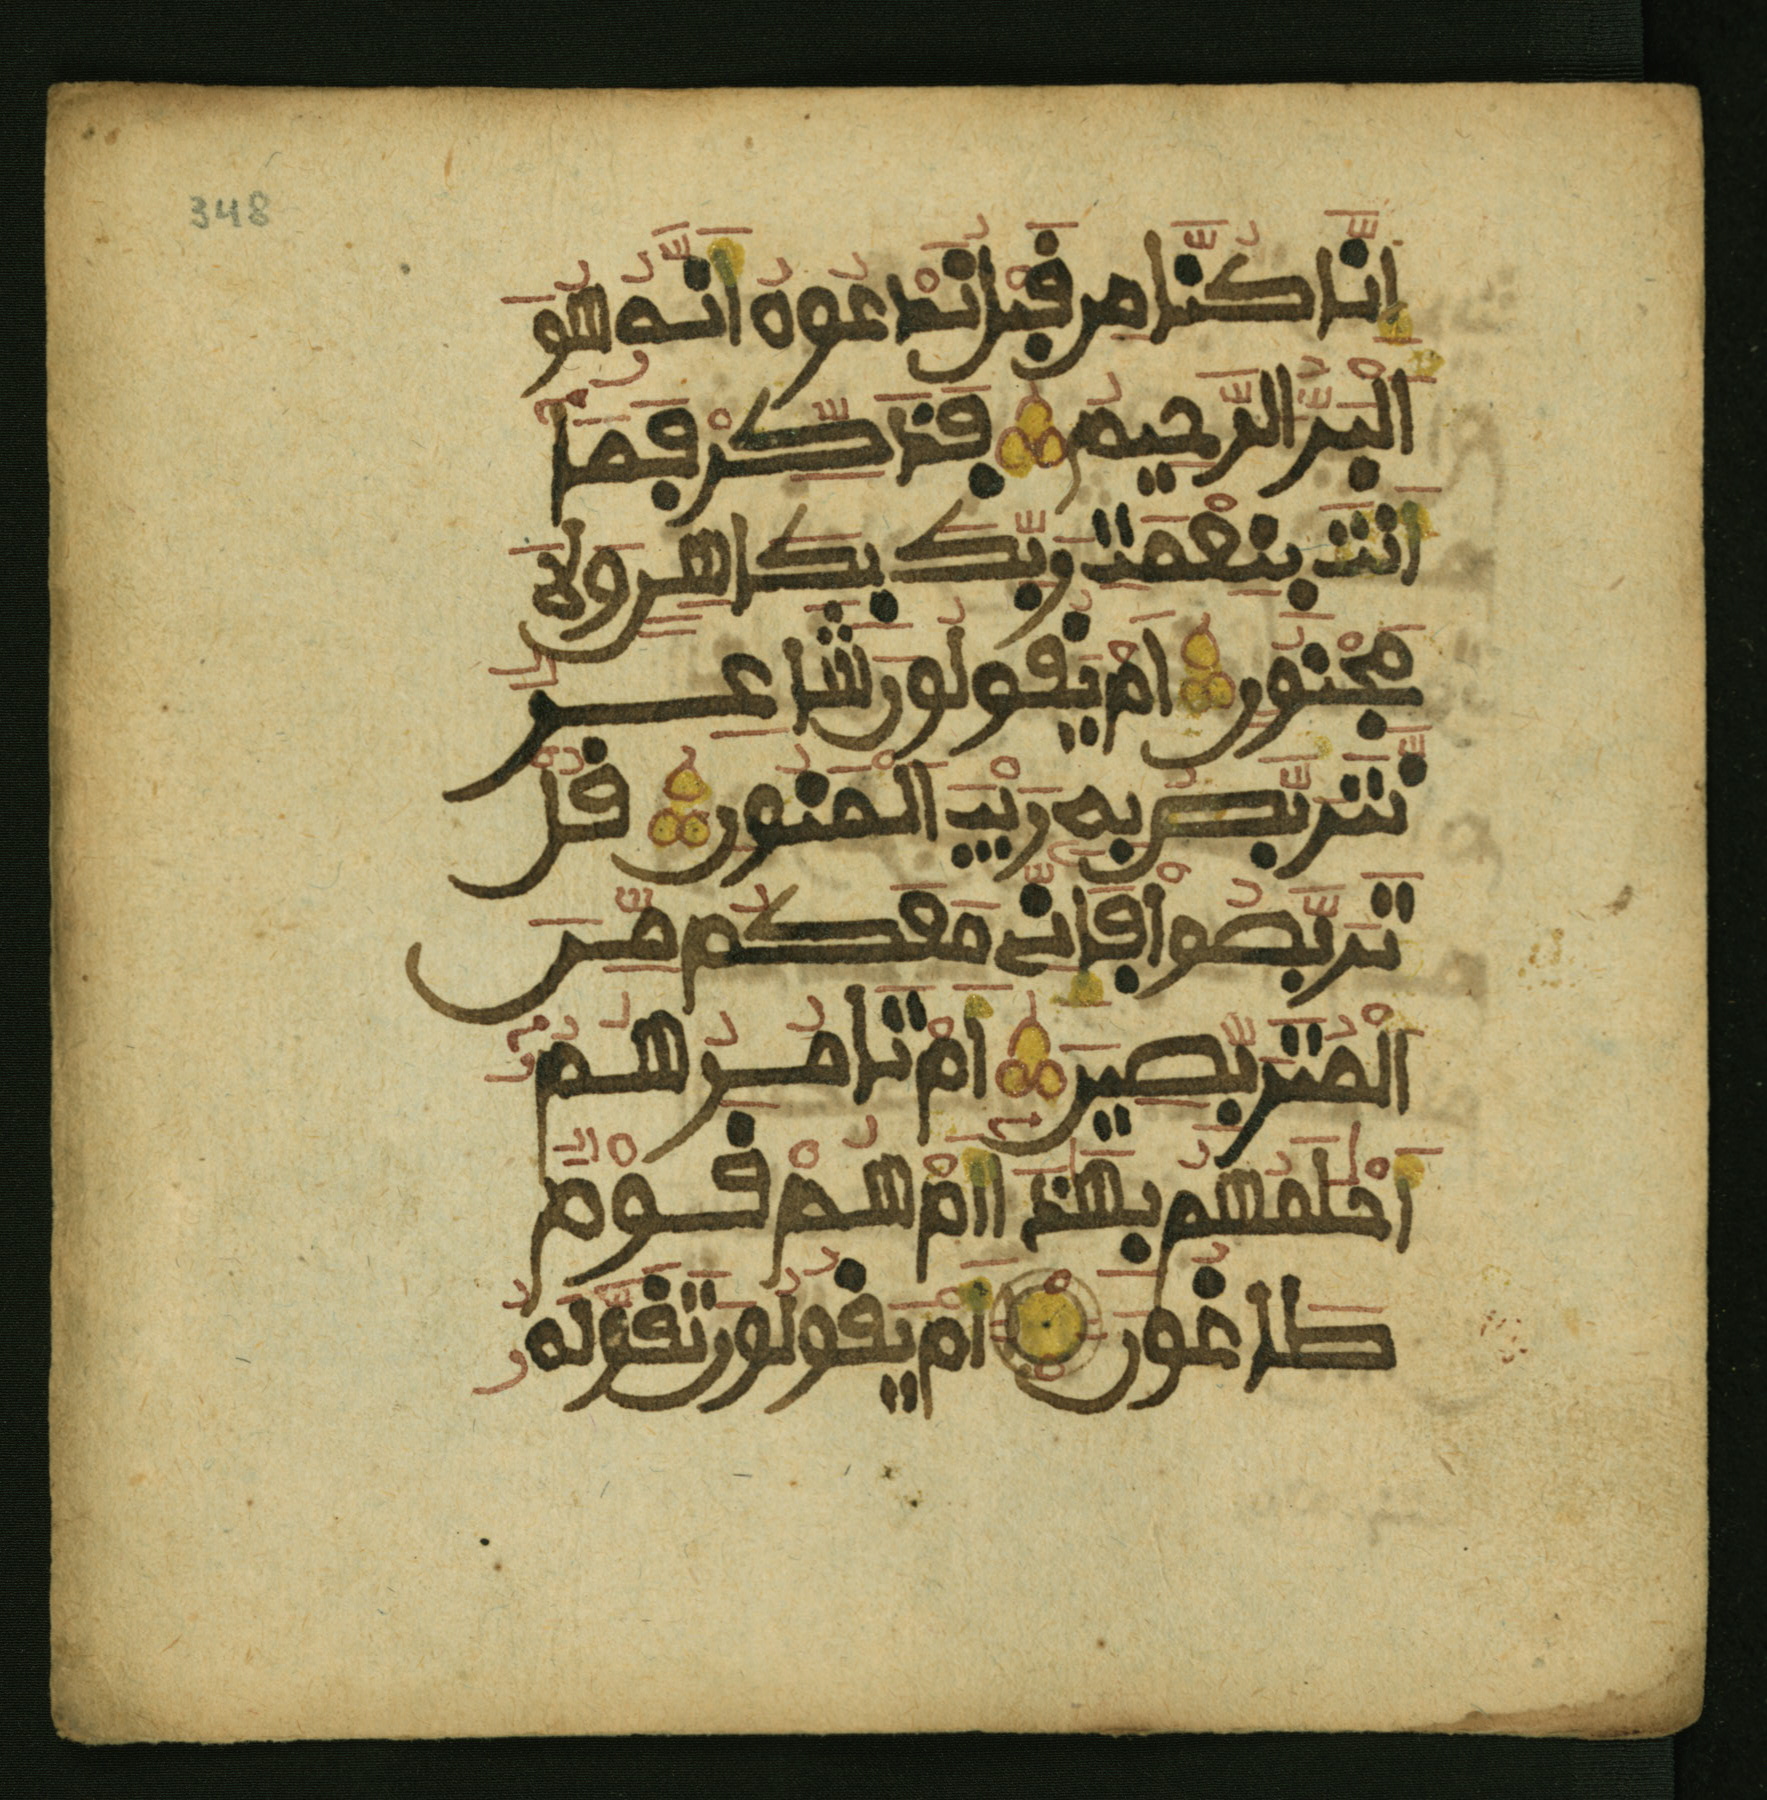 348
إِنَّا كُنَّا مِن قَبْلُ نَدْعُوهُ أَنَّهُ هُوَ
الْبَرُّ الرَّحِيمُ فَذَكِّرْ فَمَا
أَنتَ بِنِعْمَتِ رَبِّكَ بِكَاهِنٍ وَلَا
مَجْنُونٍ أَمْ يَقُولُونَ شَاعِرٌ
نَّتَرَبَّصُ بِهِ رَيْبَ الْمَنُونِ قُلْ
تَرَبَّصُواْ فَإِنِّي مَعَكُم مِّنَ
الْمُتَرَبِّصِينَ أَمْ تَامُرُهُمُ
أَحْلَٰمُهُم بِهَٰذَا أَمْ هُمْ قَوْمٌ
طَاغُونَ أَمْ يَقُولُونَ تَقَوَّلَهُ